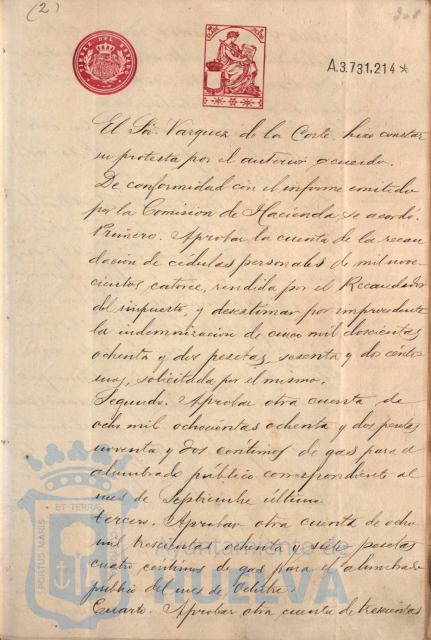 (2)
TIMBRE DEL ESTADO
A.3.731.214*
El Sr. Vazquez de la Corte hizo constar
su protesta por el anterior acuerdo.
De conformidad con el informe emitido
por la Comision de Hacienda se acordó:
Primero. Aprobar la cuenta de la recau
dación de cédulas personales de mil nove
cientos catorce, rendida por el Recaudador
del impuesto, y desestimar por improcedente
la indemnizacion de cinco mil doscientas
ochenta y dos pesetas, sesenta y dos cénti
mos, solicitada por el mismo.
Segundo. Aprobar otra cuenta de
ocho mil ochocientas ochenta y dos pesetas
noventa y dos céntimos de gas para el
alumbrado público correspondiente al
mes de Septiembre último
tercero. Aprobar otra cuenta de ocho
mil trescientas ochenta y siete pesetas
cuatro centimos de gas para el alumbrado
público del mes de Octubre.
Cuarto. Aprobar otra cuenta de trescientas
PORTUS MARIS ET TERRAE
Ayuntamiento de
HUELVA